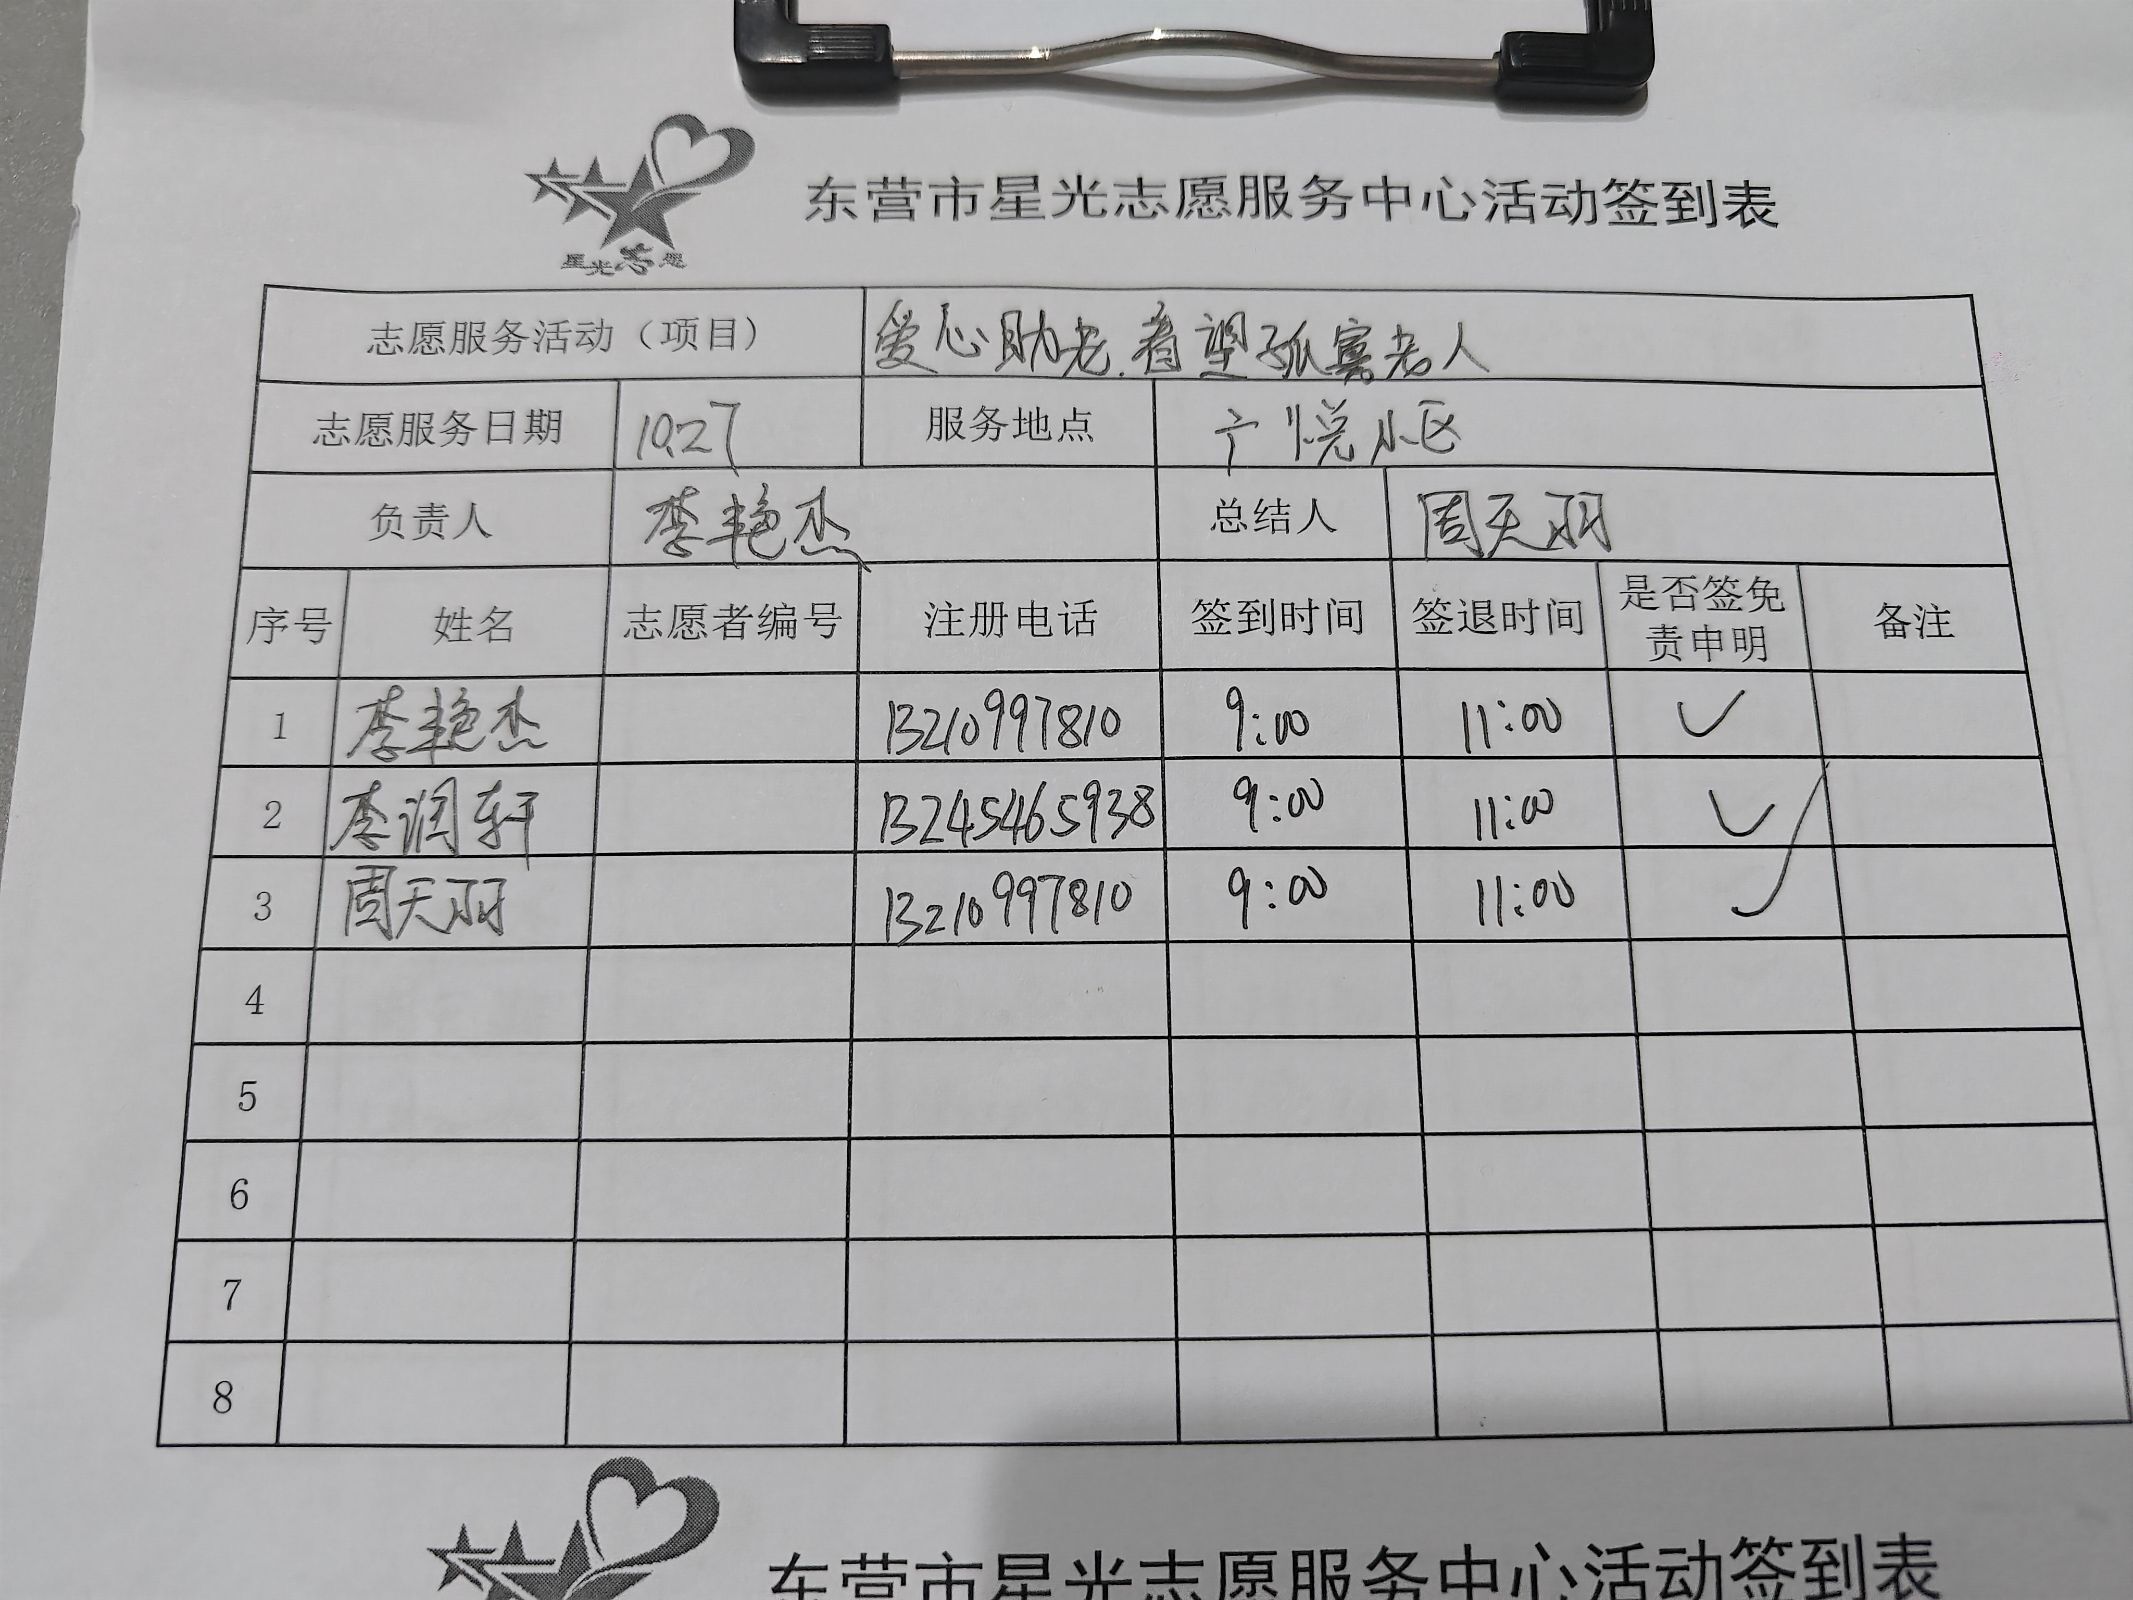 星光志愿
东营市星光志愿服务中心活动签到表
志愿服务活动（项目） 爱心助老.看望孤寡老人
志愿服务日期 10.27 服务地点 广悦小区
负责人 李艳杰 总结人 周天羽
序号 姓名 志愿者编号 注册电话 签到时间 签退时间 是否签免责申明 备注
1 李艳杰 13210997810 9:00 11:00 ✓
2 李润轩 13245465938 9:00 11:00 ✓
3 周天羽 13210997810 9:00 11:00 ✓
4
5
6
7
8
东营市星光志愿服务中心活动签到表